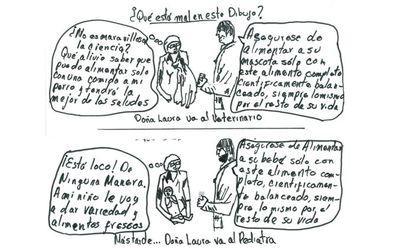 ¿Qué está mal en este Dibujo?
¿No es maravillosa
la ciencia?
Qué alivio saber que
puedo alimentar solo
con una comida a mi
perro y tendrá la
mejor de las saludes
Asegúrese de
alimentar a su
mascota sólo con
este alimento completo
Científicamente balan-
ceado, siempre lo mismo
por el resto de su vida
Doña Laura va al Veterinario
¡Está loco! De
Ninguna Manera,
A mi niño le voy
a dar variedad y
alimentos frescos
Asegúrese de Alimentar
a su bebé solo con
este alimento com-
pleto, científicamen-
te balanceado, siem-
pre lo mismo por el
resto de su vida
Más tarde... Doña Laura va al Pediatra